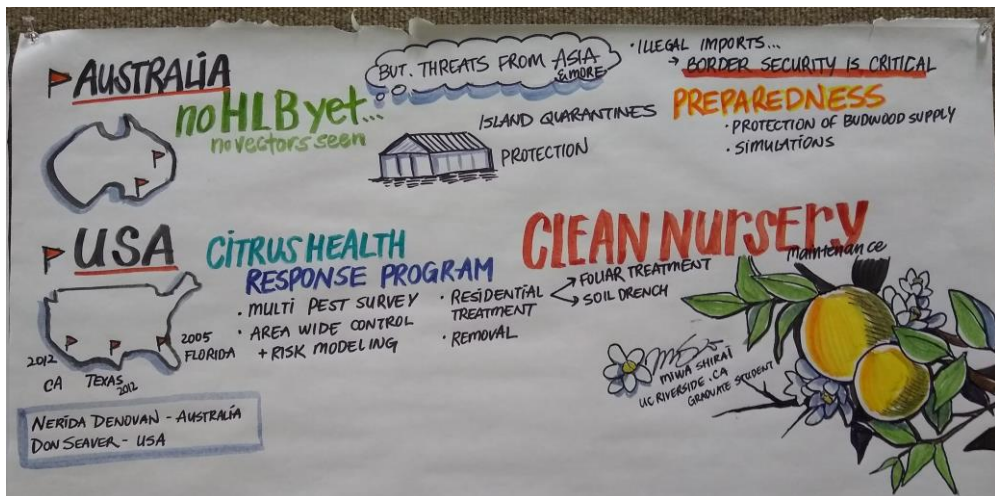 AUSTRALIA
no HLB yet...
no vectors seen
BUT. THREATS FROM ASIA
& MORE
• ILLEGAL IMPORTS...
→ BORDER SECURITY IS CRITICAL
ISLAND QUARANTINES
PROTECTION
PREPAREDNESS
• PROTECTION OF BUDWOOD SUPPLY
• SIMULATIONS
USA
2012
CA
TEXAS
2012
2005
FLORIDA
CITRUS HEALTH
RESPONSE PROGRAM
• MULTI PEST SURVEY
• AREA WIDE CONTROL
+ RISK MODELING
• RESIDENTIAL
TREATMENT
→ FOLIAR TREATMENT
→ SOIL DRENCH
• REMOVAL
CLEAN NURSERY
maintenance
MIWA SHIRAI
UC RIVERSIDE. CA
GRADUATE STUDENT
NERIDA DENOVAN - AUSTRALIA
DON SEAVER - USA